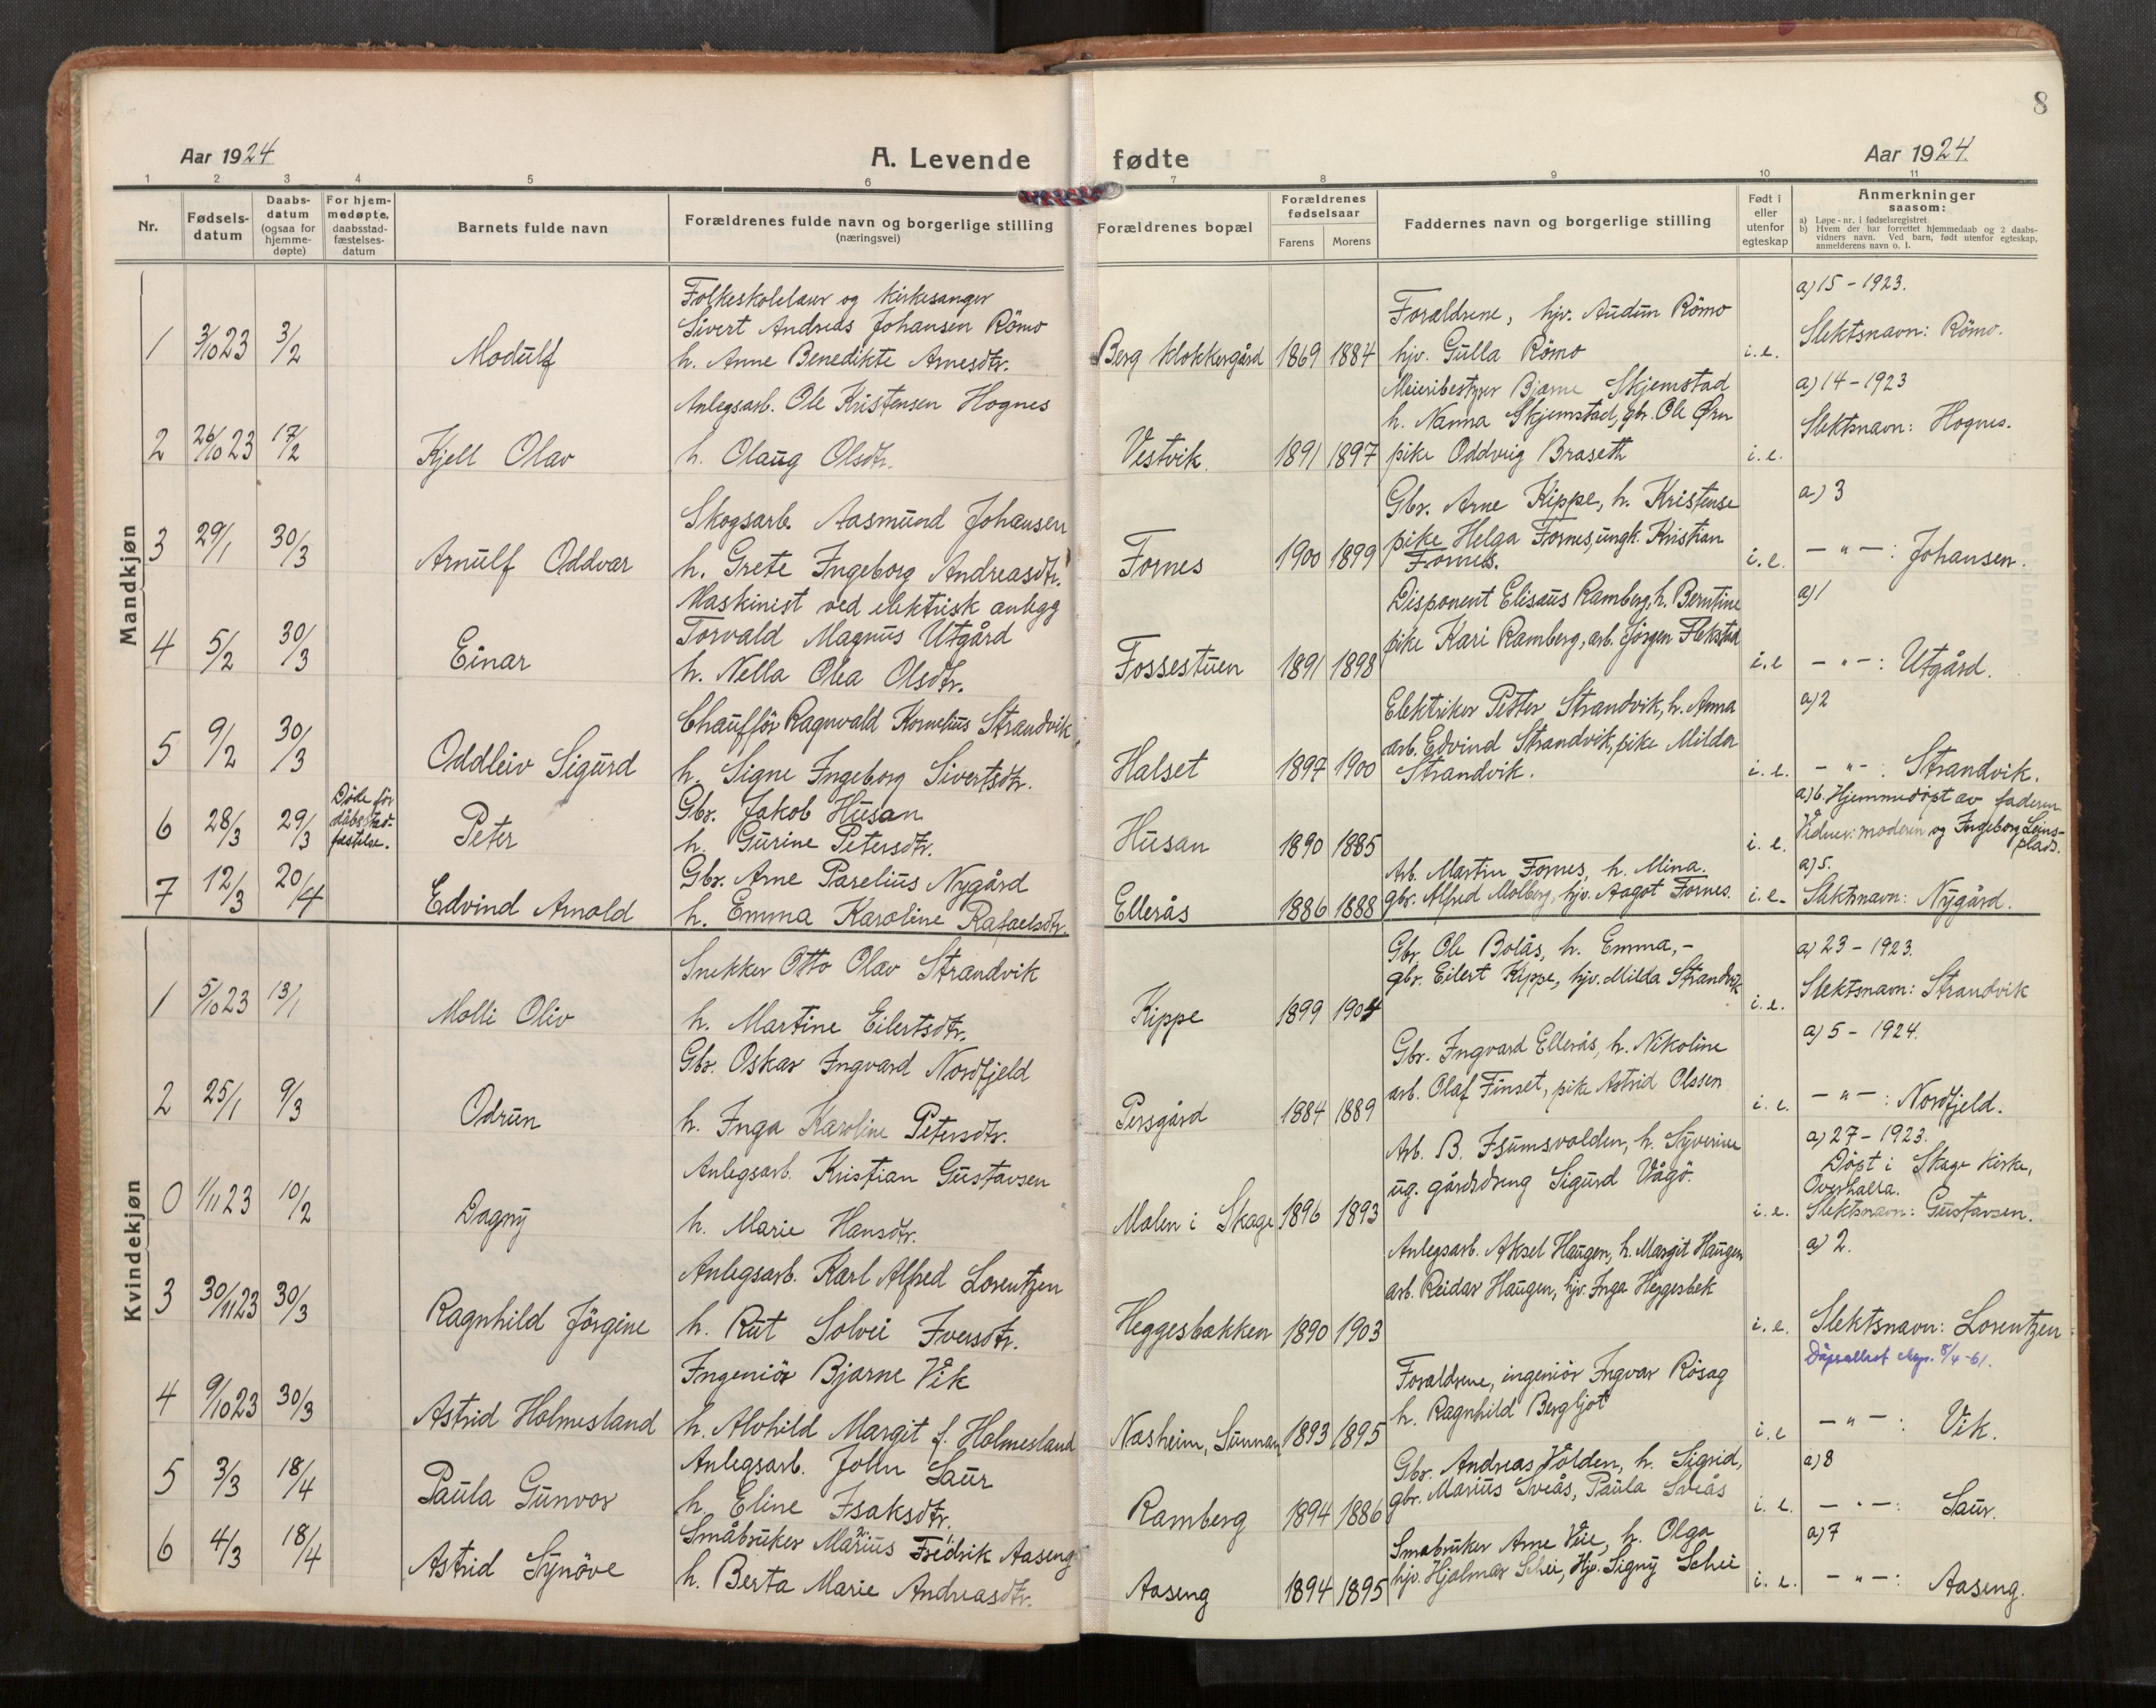 8
Aar 1924
A. Levende fødte
Aar 1924.
1 2 3 4 5 6 7 8 9 10 11
Nr.
Fødsels-datum
Daabs-datum (ogsaa for hjemme-døpte)
For hjem-medøpte, daabsstad-fæstelses-datum
Barnets fulde navn
Forældrenes fulde navn og borgerlige stilling
(næringsvei)
Forældrenes bopæl
Forældrenes fødselsaar
Farens Morens
Faddernes navn og borgerlige stilling
Født i eller utenfor egteskap
Anmerkninger
saasom:
a) Løpe-nr. i fødselsregistret
b) Hvem der har forrettet hjemmedaab og 2 daabs-vidners navn. Ved barn, født utenfor egteskap, anmelderens navn o. l.
Mandkjøn
1 3/10 23 3/2 Modulf
Folkeskolelærer og kirkesanger
Sivert Andreas Johansen Römo
h. Anne Benedikte Arnesdtr.
Berg klokkergård 1869 1884
Forældrene, hjv. Audun Römo
hjv. Gulla Römo
i. e.
a) 15 - 1923.
Slektsnavn: Römo.
2 26/10 23 17/2 Kjell Olav
Anlegsarb. Ole Kristensen Hognes
h. Olaug Olsdtr.
Vestvik. 1891 1897
Meieribestyrer Bjarne Skjemstad
h. Nanna Skjemstad, gbr. Ole Ørn
pike Oddveig Braseth
i. e.
a) 14 - 1923
Slektsnavn: Hognes.
3 29/1 30/3 Arnulf Oddvar
Skogsarb. Aasmund Johansen
h. Grete Ingeborg Andreasdtr.
Fornes 1900 1899
Gbr. Arne Kippe, h. Kristense
pike Helga Fornes, ungk. Kristian
Fornes.
i. e.
a) 3
- " - : Johansen.
4 5/2 30/3 Einar
Maskinist ved elektrisk anlegg
Torvald Magnus Utgård
h. Nella Olea Olsdtr.
Fossestuen 1891 1898
Disponent Elisæus Ramberg, h. Berntine
pike Kari Ramberg, arb. Jörgen Flekstad
i. e
a) 1
- " - : Utgård.
5 9/2 30/3 Oddleiv Sigurd
Chaufför Ragnvald Kornelius Strandvik
h. Signe Ingeborg Sivertsdtr.
Halset 1897 1900
Elektriker Petter Strandvik, h. Anna
arb. Edvind Strandvik, pike Milda
Strandvik.
i. e.
a) 2
- " - : Strandvik.
6 28/3 29/3 Døde før dåbsstad-fæstelse. Peter
Gbr. Jakob Husan
h. Gurine Petersdtr.
Husan 1890 1885
i. e.
a) 6. Hjemmedøpt av faderen
Vidner: moderen og Ingeborg Leins-
plads.
7 12/3 20/4 Edvind Arnold
Gbr. Arne Parelius Nygård
h. Emma Karoline Rafaelsdtr.
Ellerås 1886 1888
Arb. Martin Fornes, h. Mina.
gbr. Alfred Molberg, hjv. Aagot Fornes.
i. e.
a) 5.
Slektsnavn: Nygård.
Kvindekjøn
1 5/10 23 13/1 Molli Oliv
Snekker Otto Olav Strandvik
h. Martine Eilertsdtr.
Kippe 1899 1904
Gbr. Ole Bolås, h. Emma, -
gbr. Eilert Kippe, hjv. Milda Strandvik
i. e.
a) 23 - 1923.
Slektsnavn: Strandvik
2 25/1 9/3 Odrun
Gbr. Oskar Ingvard Nordfjeld
h. Inga Karoline Petersdtr.
Persgård 1884 1889
Gbr. Ingvard Ellerås, h. Nikoline
arb. Olaf Finset, pike Astrid Olssen
i. e.
a) 5 - 1924.
- " - : Nordfjeld.
0 1/11 23 10/2 Dagny
Anlegsarb. Kristian Gustavsen
h. Marie Hansdtr.
Molen i Skage 1896 1893
Arb. B. Fsumsvolden, h. Syverine
ug. gårdsdreng Sigurd Vågö.
i. e.
a) 27 - 1923.
Döpt i Skage kirke,
Overhalla.
Slektsnavn: Gustavsen.
3 30/11 23 30/3 Ragnhild Jörgine
Anlegsarb. Karl Alfred Lorentzen
h. Rut Solvei Iversdtr.
Heggesbakken 1890 1903
Anlegsarb. Aksel Haugen, h. Margit Haugen
arb. Reidar Haugen, hjv. Inga Heggesbek
i. e.
a) 2.
Slektsnavn: Lorentzen
Dåpsattest 8/4-61.
4 9/10 23 30/3 Astrid Holmesland
Ingeniör Bjarne Vik
h. Alvhild Margit f. Holmesland
Næsheim, Sunnan 1893 1895
Forældrene, ingeniör Ingvar Rösag
h. Ragnhild Bergljot
i. e
- " - : Vik.
5 3/3 18/4 Paula Gunvor
Anlegsarb. John Saur
h. Eline Isaksdtr.
Ramberg 1894 1886
Gbr. Andreas Volden, h. Sigrid,
gbr. Marius Sveås, Paula Sveås
i. e.
a) 8
- " - : Saur.
6 4/3 18/4 Astrid Synöve
Småbruker Marius Fredrik Aaseng
h. Berta Marie Andreasdtr.
Aaseng 1894 1895
Småbruker Arne Veie, h. Olga
hjv. Hjalmar Schei, Hjv. Signy Schei
i. e.
a) 7
- " - : Aaseng.